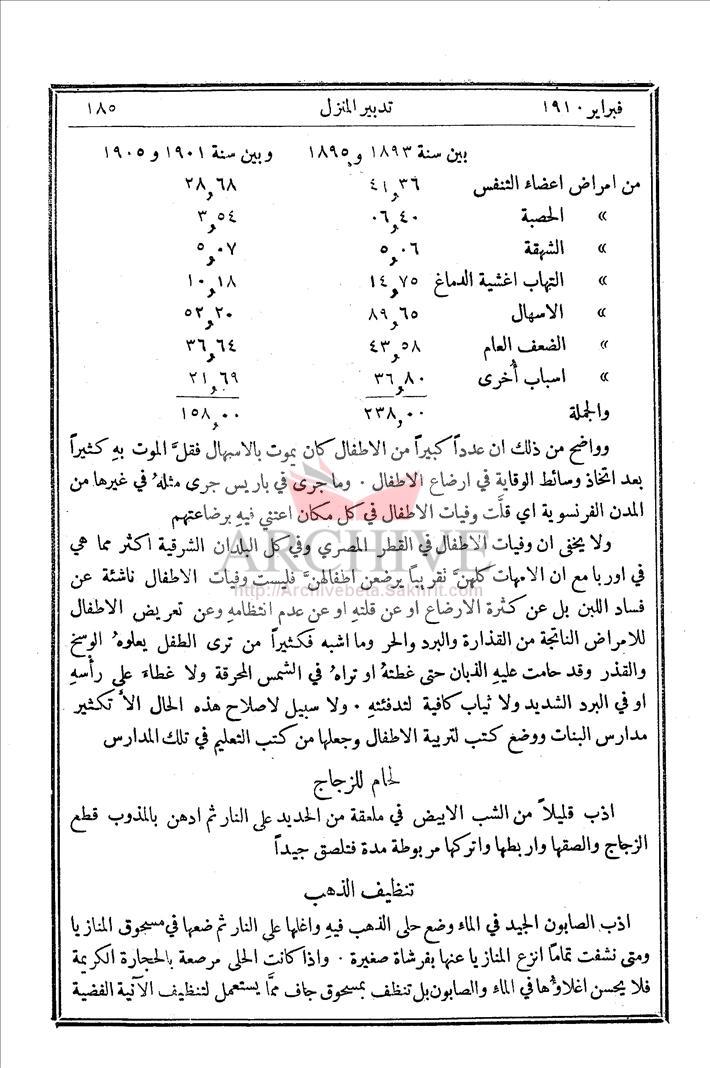 فبراير ١٩١٠ تدبير المنزل ١٨٥
بين سنة ١٨٩٣ و ١٨٩٥ وبين سنة ١٩٠١ و ١٩٠٥
من امراض اعضاء التنفس ٤١,٣٦ ٢٨,٦٨
» الحصبة ٠٦,٤٠ ٣,٥٤
» الشهقة ٥,٠٦ ٥,٠٧
» التهاب اغشية الدماغ ١٤,٧٥ ١٠,١٨
» الاسهال ٨٩,٦٥ ٥٢,٢٠
» الضعف العام ٤٣,٥٨ ٣٦,٦٤
» اسباب أُخرى ٣٦,٨٠ ٢١,٦٩
والجملة ٢٣٨,٠٠ ١٥٨,٠٠
وواضح من ذلك ان عدداً كبيراً من الاطفال كان يموت بالاسهال فقلَّ الموت بهِ كثيراً
بعد اتخاذ وسائط الوقاية في ارضاع الاطفال . وما جرى في باريس جرى مثلهُ في غيرها من
المدن الفرنسوية اي قلَّت وفيات الاطفال في كل مكان اعتني فيهِ برضاعتهم
ولا يخفى ان وفيات الاطفال في القطر المصري وفي كل البلدان الشرقية اكثر مما هي
في اوربا مع ان الامهات كلهنَّ نقريباً يرضعن اطفالهنَّ فليست وفيات الاطفال ناشئة عن
فساد اللبن بل عن كثرة الارضاع او عن قلتهِ او عن عدم انتظامهِ وعن تعريض الاطفال
للامراض الناتجة من القذارة والبرد والحر وما اشبه فكثيراً من ترى الطفل يعلوهُ الوسخ
والقذر وقد حامت عليهِ الذبان حتى غطتهُ او تراهُ في الشمس المحرقة ولا غطاءَ على رأْسهِ
او في البرد الشديد ولا ثياب كافية لتدفئتهِ . ولا سبيل لاصلاح هذه الحال الاَّ تكثير
مدارس البنات ووضع كتب لتربية الاطفال وجعلها من كتب التعليم في تلك المدارس
لحام للزجاج
اذب قليلاً من الشب الابيض في ملعقة من الحديد على النار ثم ادهن بالمذوب قطع
الزجاج والصقها واربطها واتركها مربوطة مدة فتلصق جيداً
تنظيف الذهب
اذب الصابون الجيد في الماء وضع حلى الذهب فيهِ واغلها على النار ثم ضعها في مسحوق المنازيا
ومتى نشفت تماماً انزع المنازيا عنها بفرشاة صغيرة . واذا كانت الحلى مرصعة بالحجارة الكريمة
فلا يحسن اغلاؤُها في الماء والصابون بل تنظف بمسحوق جاف ممَّا يستعمل لتنظيف الآنية الفضية
ARCHIVE
http://Archivebeta.Sakhrit.com